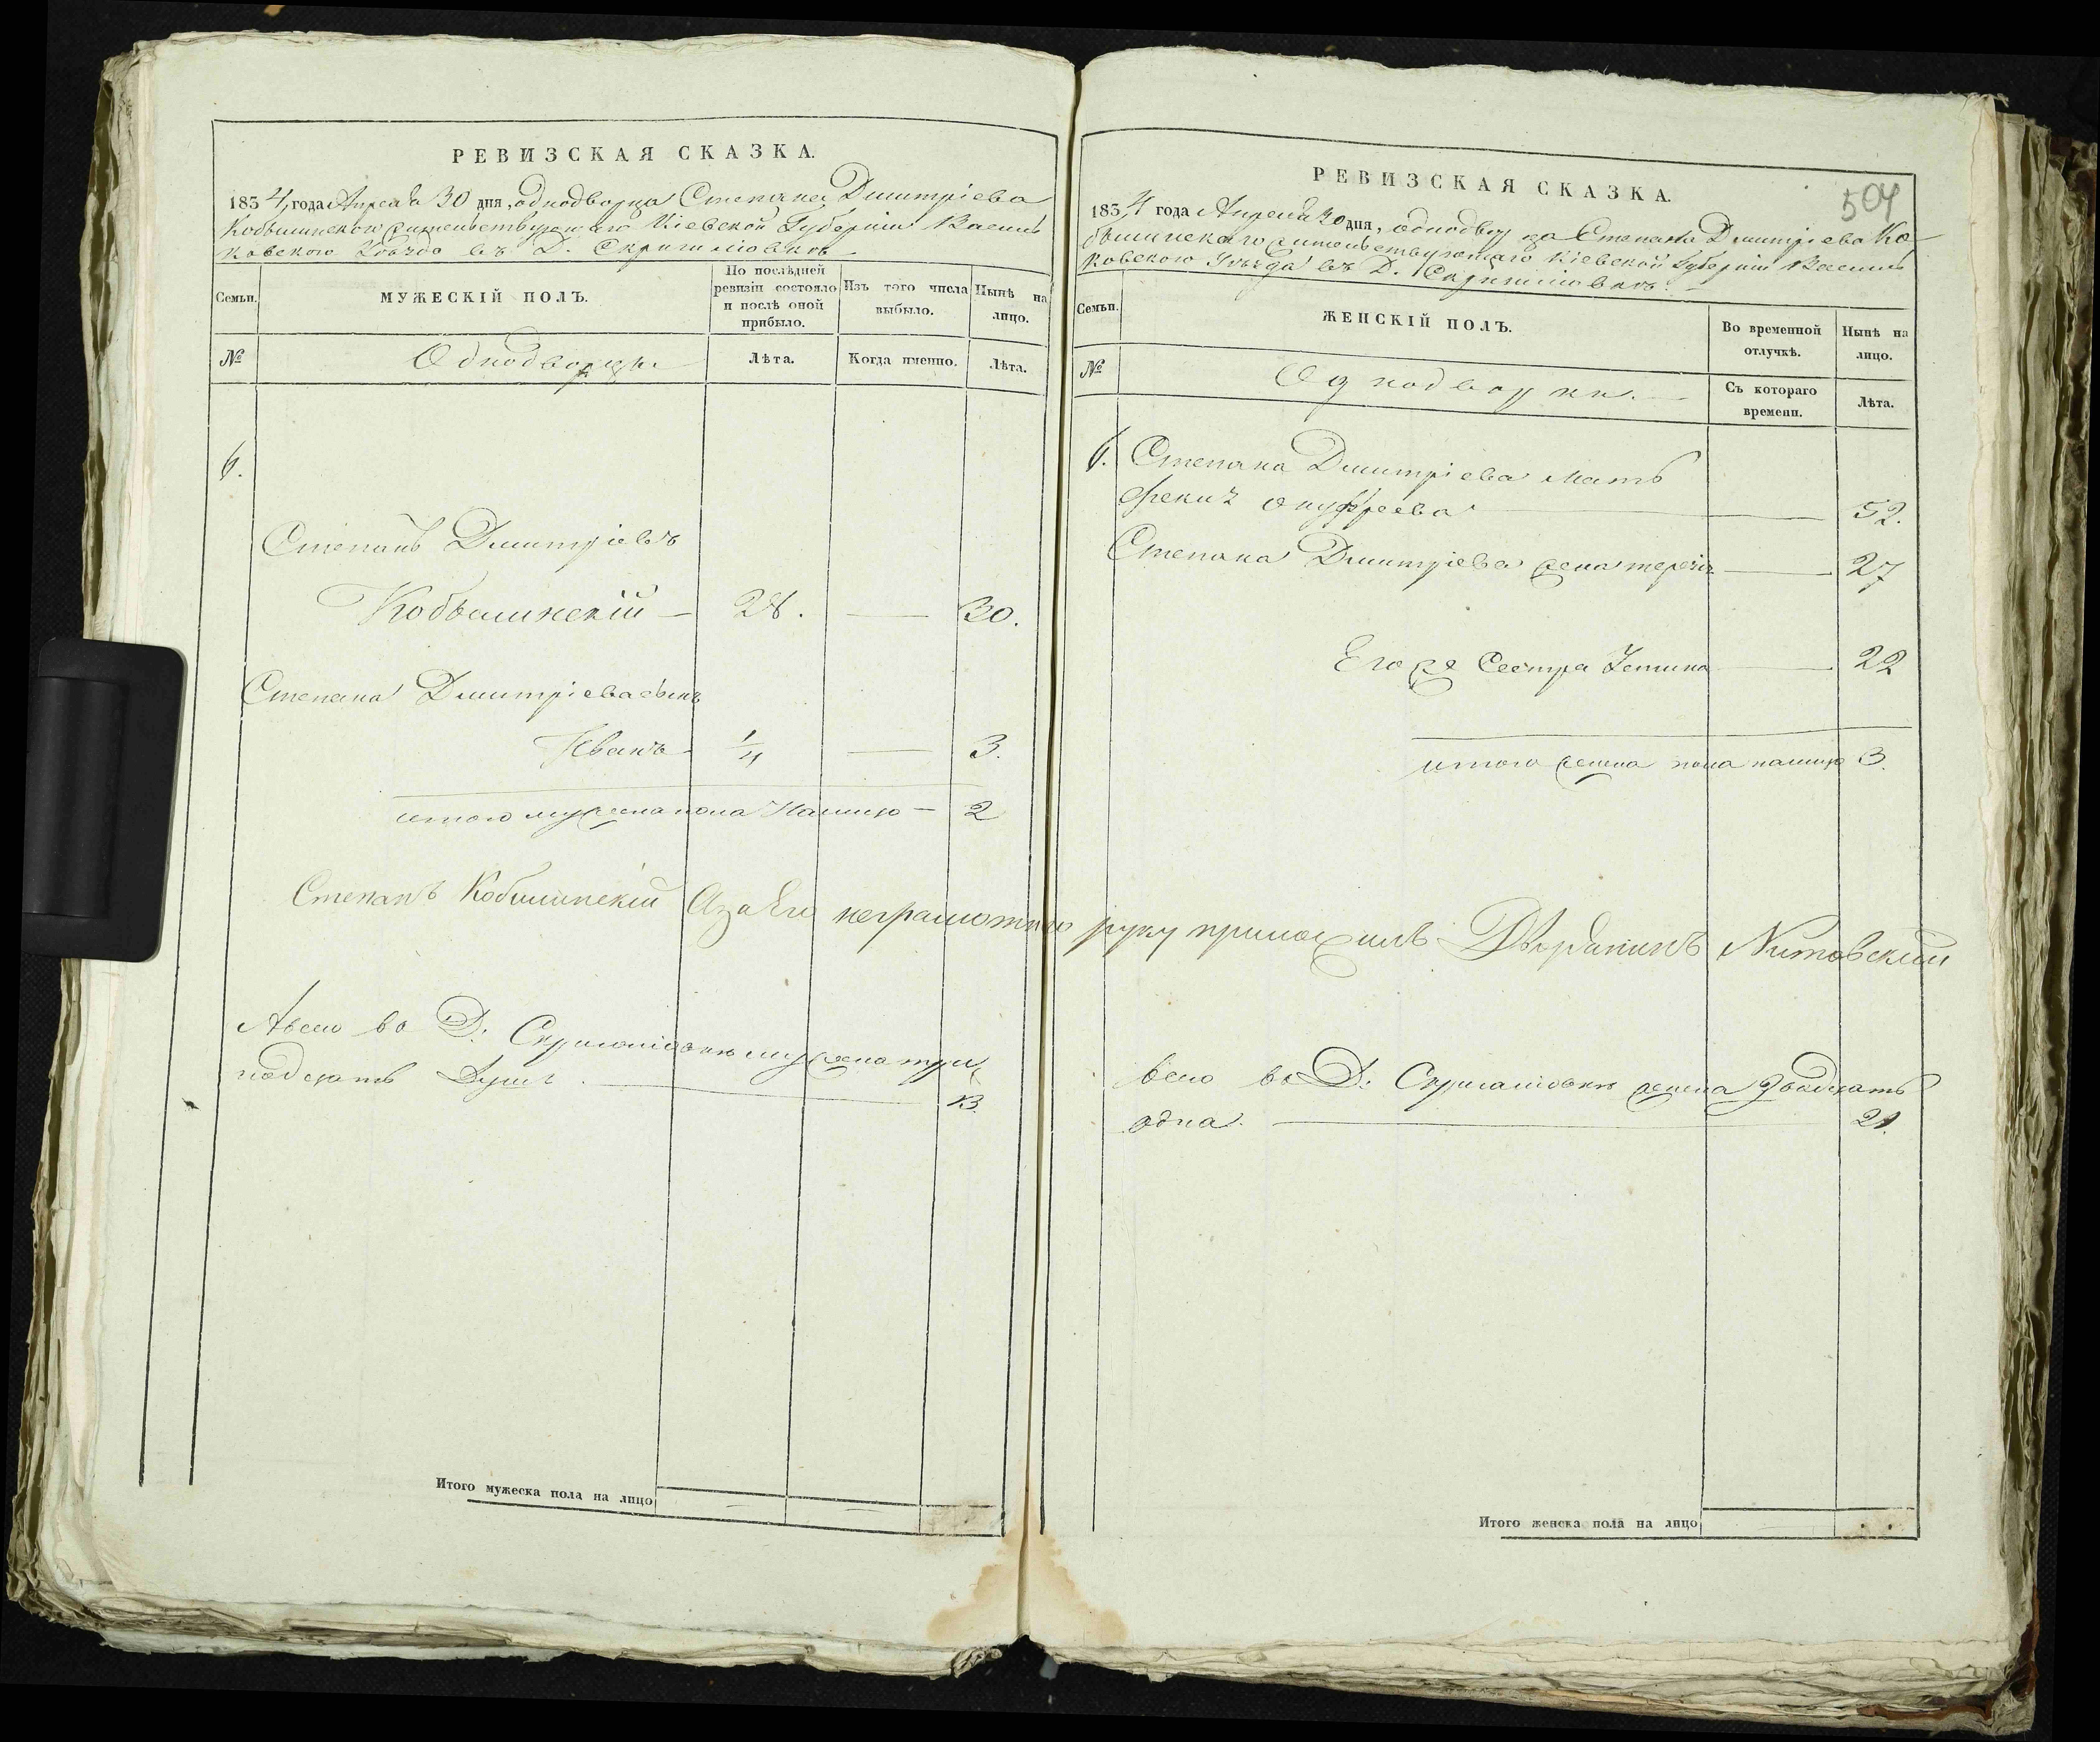 РЕВИЗСКАЯ СКАЗКА.
1834 года Апреля 30 дня, однодворца Степана Дмитріева
Кобылинского жительствующего Кіевской Губерніи Василь
ковского Уѣзда въ Д.
Семьи.
МУЖЕСКІЙ ПОЛЪ.
По послѣдней ревизіи состояло и послѣ оной прибыло.
Изъ того числа выбыло.
Нынѣ на лицо.
№
Однодворцы
Лѣта.
Когда именно.
Лѣта.
6.
Степанъ Дмитріевъ
Кобылинскій — 28. — 30.
Степана Дмитріева сынъ
Иванъ 1/4 — 3.
итого мужеска пола налицо — 2
Степанъ Кобилинскій А за Его неграмотного руку приложилъ Дворянинъ
Авсего во Д: мужеска три
надцать Душъ 13.
504
РЕВИЗСКАЯ СКАЗКА.
1834 года Апреля 30 дня, однодворца Степана Дмитріева Ко
былинскаго жительствующаго Кіевской Губерніи Василь
ковского Уѣзда въ Д.
Семьи.
ЖЕНСКІЙ ПОЛЪ.
Во временной отлучкѣ.
Нынѣ на лицо.
№
Однодворки.
Съ котораго времени.
Лѣта.
6. Степана Дмитріева мать
Онуфреева — 52.
Степана Дмитріева жена — 27
Его же Сестра Устина — 22
итого женска пола налицо 3.
всего во Д: женска двадцать
одна. 21.
Итого мужеска пола на лицо
Итого женска пола на лицо